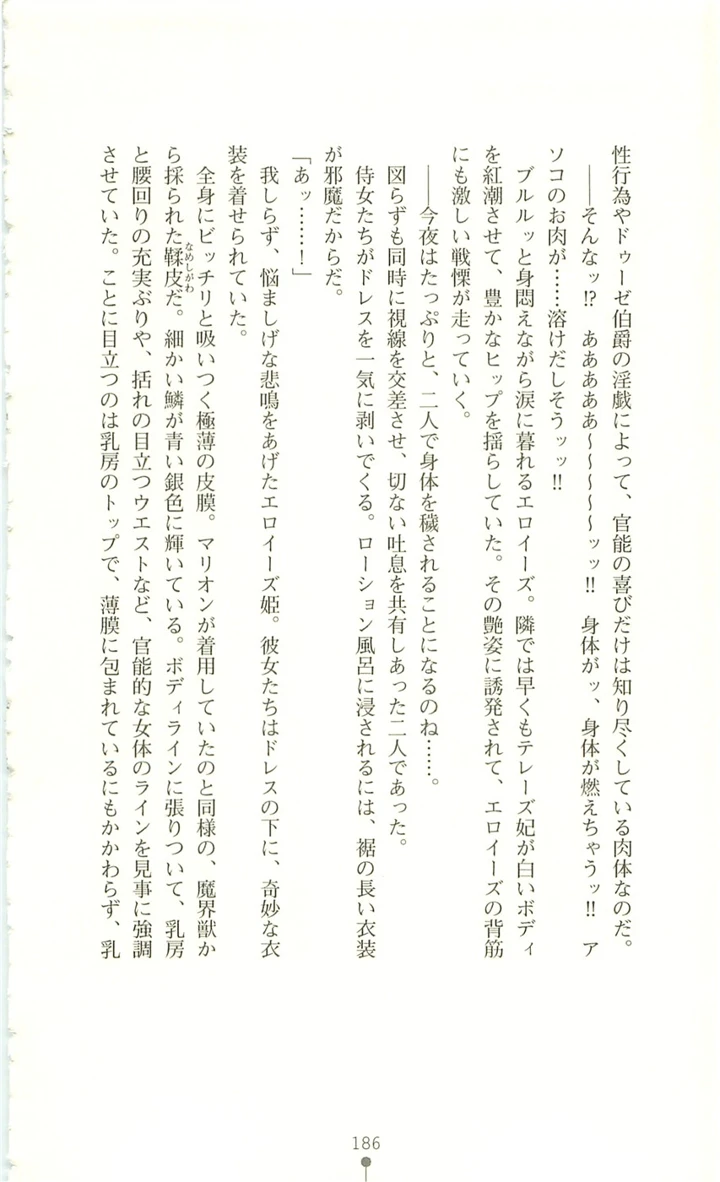 性行為やドゥーゼ伯爵の淫戯によって、官能の喜びだけは知り尽くしている肉体なのだ。
――そんなッ!? あああああ～～～～～ッッ!! 身体がッ、身体が燃えちゃうッ!! ア
ソコのお肉が……溶けだしそうッッ!!
ブルルッと身悶えながら涙に暮れるエロイーズ。隣では早くもテレーズ妃が白いボディ
を紅潮させて、豊かなヒップを揺らしていた。その艶姿に誘発されて、エロイーズの背筋
にも激しい戦慄が走っていく。
――今夜はたっぷりと、二人で身体を穢されることになるのね……。
図らずも同時に視線を交差させ、切ない吐息を共有しあった二人であった。
侍女たちがドレスを一気に剥いでくる。ローション風呂に浸されるには、裾の長い衣装
が邪魔だからだ。
「あッ……！」
我しらず、悩ましげな悲鳴をあげたエロイーズ姫。彼女たちはドレスの下に、奇妙な衣
装を着せられていた。
全身にピッチリと吸いつく極薄の皮膜。マリオンが着用していたのと同様の、魔界獣か
ら採られた鞣皮だ。細かい鱗が青い銀色に輝いている。ボディラインに張りついて、乳房
なめしがわ
と腰回りの充実ぶりや、括れの目立つウエストなど、官能的な女体のラインを見事に強調
させていた。ことに目立つのは乳房のトップで、薄膜に包まれているにもかかわらず、乳
186